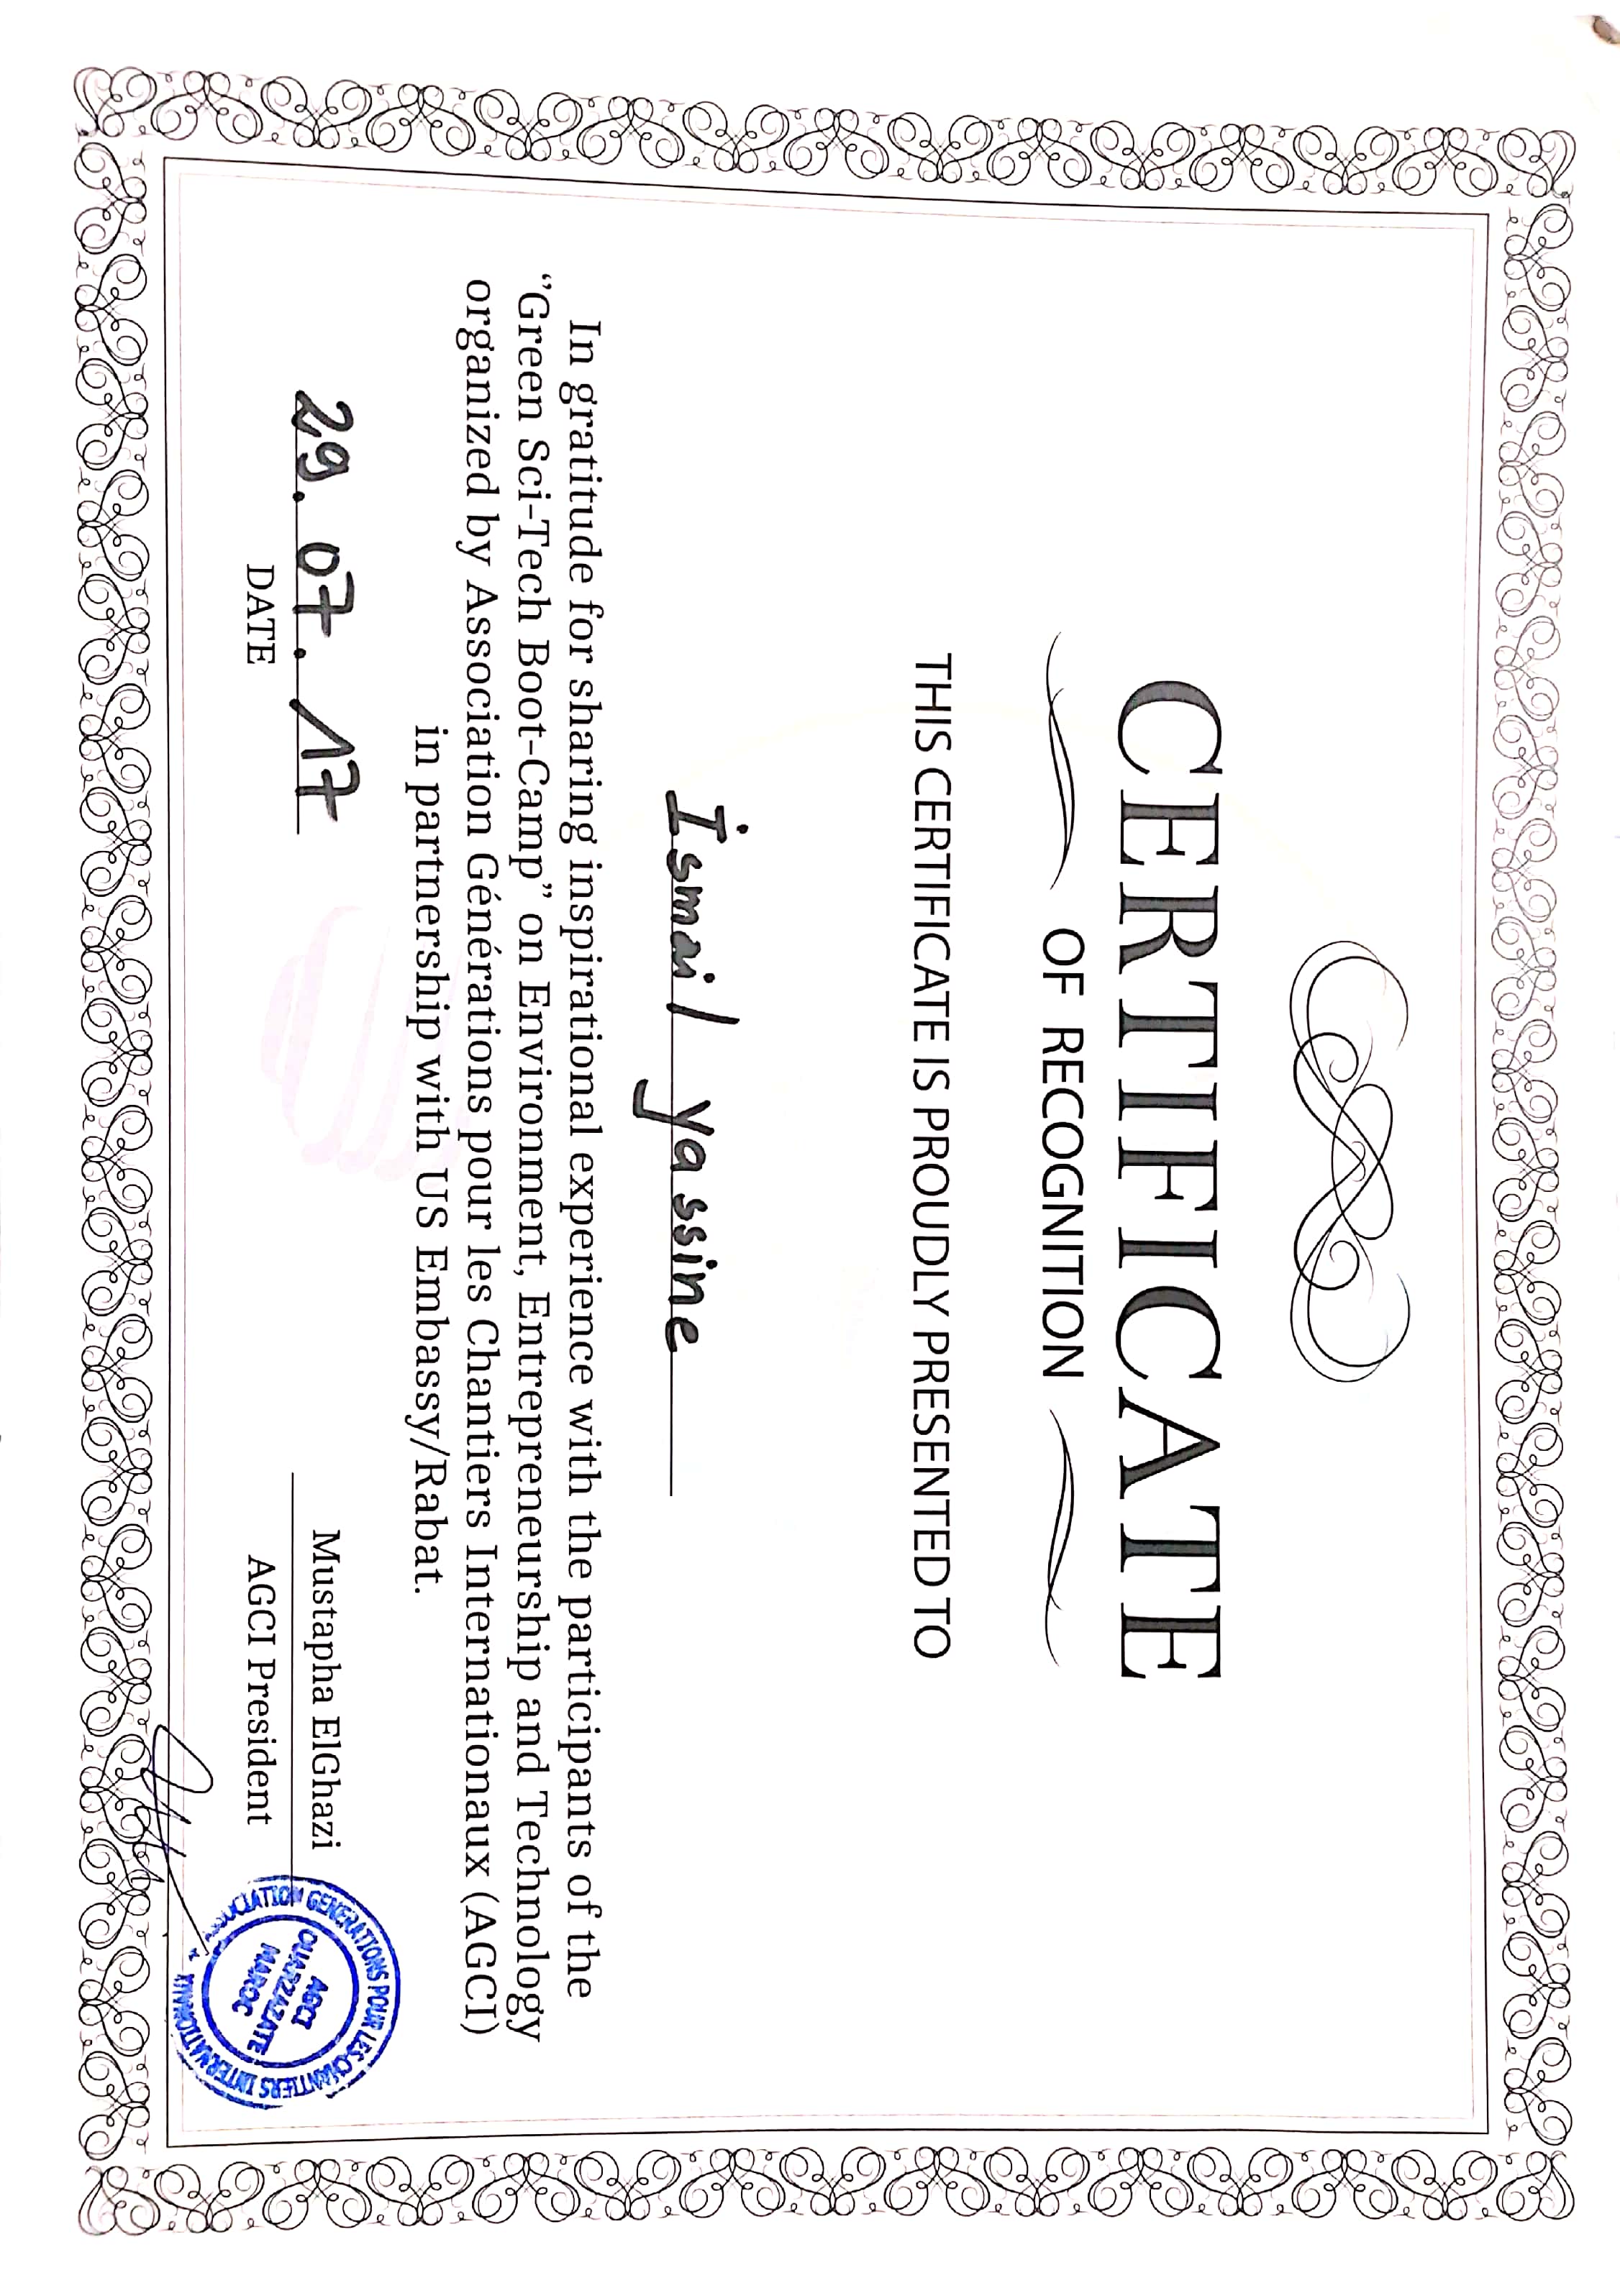 CERTIFICATE
OF RECOGNITION
THIS CERTIFICATE IS PROUDLY PRESENTED TO
İsmail yassine
In gratitude for sharing inspirational experience with the participants of the
‘’Green Sci-Tech Boot-Camp” on Environment, Entrepreneurship and Technology
organized by Association Générations pour les Chantiers Internationaux (AGCI)
in partnership with US Embassy/Rabat.
29. 07. 17
DATE
Mustapha ElGhazi
AGCI President
ASSOCIATION GENERATIONS POUR LES CHANTIERS INTERNATIONAUX
AGCI
OUARZAZATE
MAROC